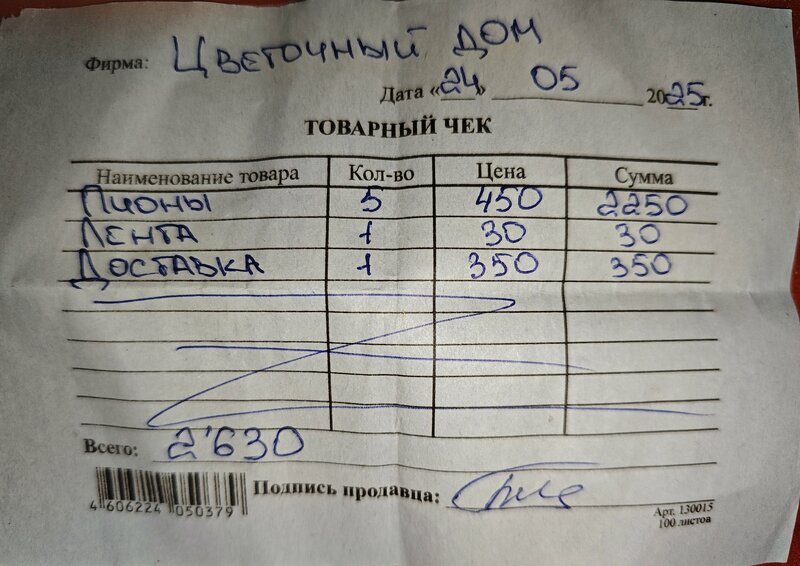 Фирма: Цветочный дом
Дата «24» 05 2025г.
ТОВАРНЫЙ ЧЕК
Наименование товара Кол-во Цена Сумма
Пионы 5 450 2250
Лента 1 30 30
Доставка 1 350 350
Всего: 2'630
Подпись продавца:
4 606224 050379
Арт. 130015
100 листов